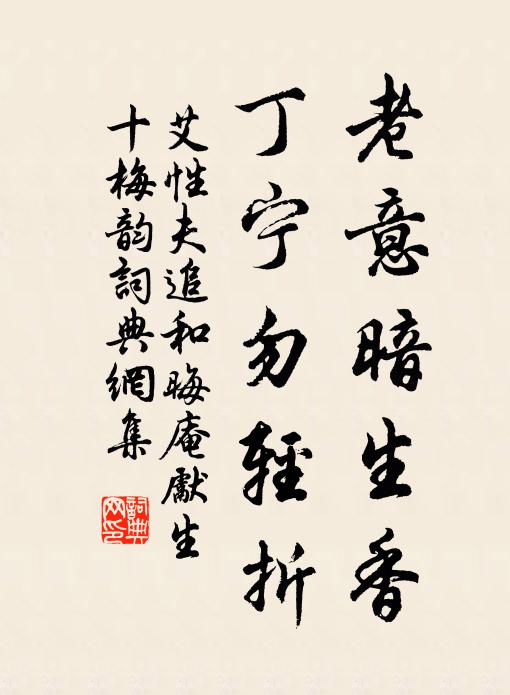 老意暗生香
丁宁勿輕折
艾性夫追和晦庵獻生
十梅韵詞典網集
詞典
网印